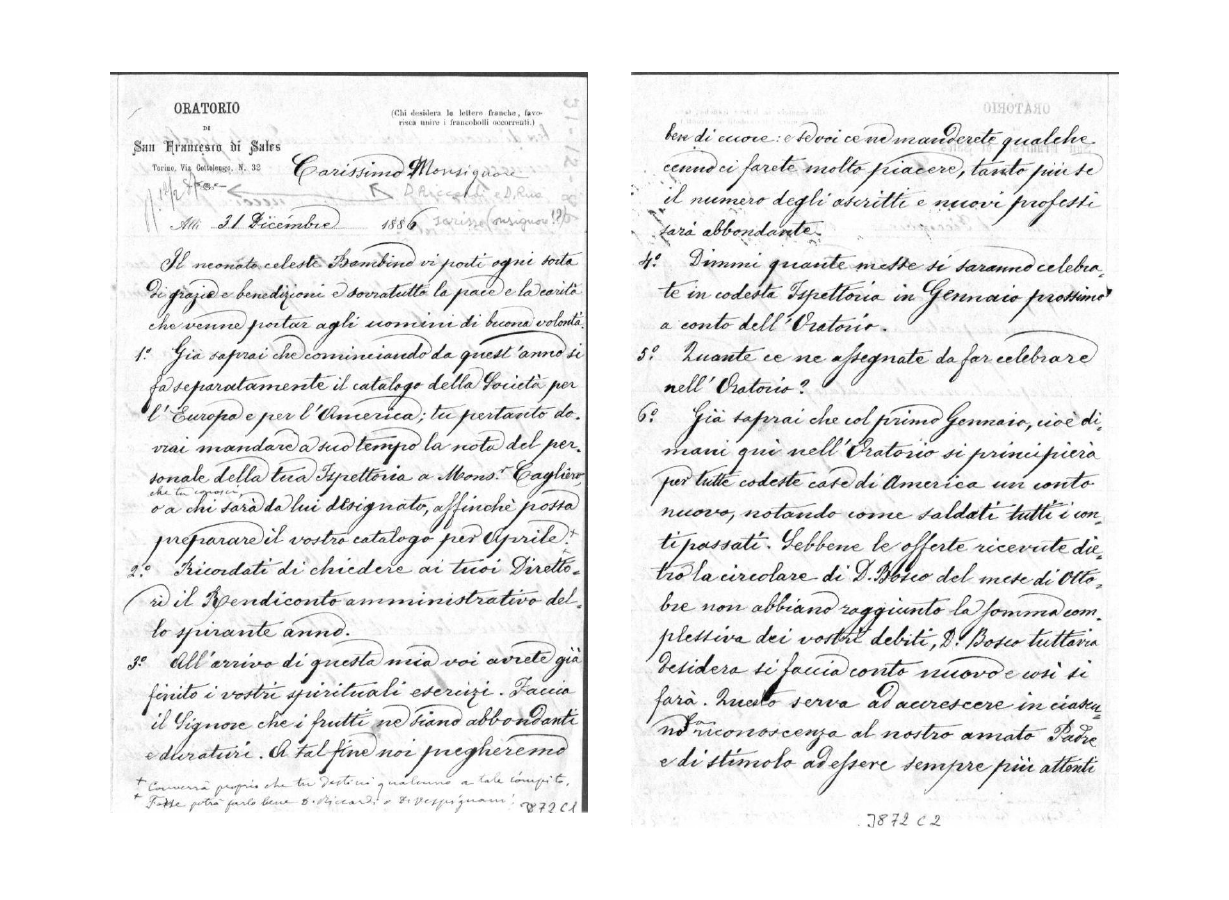 ORATORIO
DI
San Francesco di Sales
Torino, Via Cottolengo, N. 32
(Chi desidera le lettere franche, favo-
risca unire i francobolli occorrenti.)
Carissimo Monsignore
D. Riccardi e D. Rua
Alli 31 Dicembre 1886
Il neonato celeste Bambino vi porti ogni sorta
di grazie e benedizioni e sovratutto la pace e la carità
che venne portar agli uomini di buona volontà.
1.° Già saprai che cominciando da quest'anno si
fa separatamente il catalogo della Società per
l'Europa e per l'America; tu pertanto do-
vrai mandare a suo tempo la nota del per-
sonale della tua Ispettoria a Mons.r Cagliero,
che tu conosci
o a chi sarà da lui disignato, affinchè possa
preparare il vostro catalogo per Aprile.+
2.° Ricordati di chiedere ai tuoi Diretto-
ri il Rendiconto amministrativo del-
lo spirante anno.
3° All'arrivo di questa mia voi avrete già
finito i vostri spirituali esercizi. Faccia
il Signore che i frutti ne siano abbondanti
e duraturi. A tal fine noi pregheremo
+ Converrà proprio che tu destini qualcuno a tale cómpito.
+ Forse potrà farlo bene D. Riccardi o D. Vespignani.
J872 C1
ORATORIO
bene di cuore: e se voi ce ne manderete qualche
cenno ci farete molto piacere, tanto più se
il numero degli ascritti e nuovi professi
sarà abbondante.
4° Dimmi quante messe si saranno celebra-
te in codesta Ispettoria in Gennaio prossimo
a conto dell'Oratorio.
5° Quante ce ne assegnate da far celebrare
nell'Oratorio?
6° Già saprai che col primo Gennaio, cioè di-
mani qui nell'Oratorio si principierà
per tutte codeste case di America un conto
nuovo, notando come saldati tutti i con-
ti passati. Sebbene le offerte ricevute die-
tro la circolare di D. Bosco del mese di Otto-
bre non abbiano raggiunto la somma com-
plessiva dei vostri debiti, D. Bosco tuttavia
desidera si faccia conto nuovo e così si
farà. Questo serva ad accrescere in ciascu-
no riconoscenza al nostro amato Padre
e di stimolo ad essere sempre più attenti
J872 C2